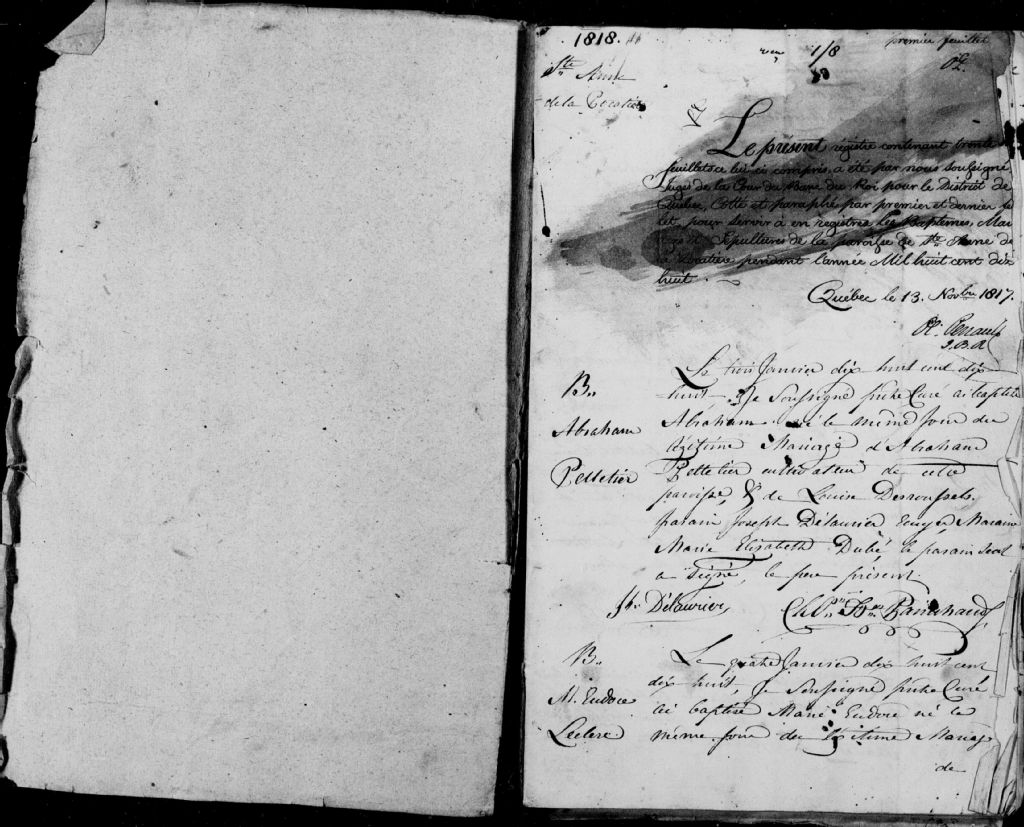 1818.
premier feuillet
1/8
Ste Anne
de la Pocatière
Le présent régistre contenant trente
feuillets ce lui-ci compris, a été par nous Soussigné
Juges de la Cour du Banc du Roi pour le District de
Québec, Cotté et paraphé par premier et dernier feuil
let pour servir à en régistrer Les Baptêmes, Mar
iages et Sépultures de la paroisse de Ste Anne de
la Pocatière pendant l'année Mil huit cent dix
huit.
Québec le 13. Novbre 1817.
Ol. Perrault
J.B.R
B..
Abraham
Pelletier
Le trois Janvier dix huit cent dix
huit, Je Soussigné prêtre Curé ai baptisé
Abraham né le même jour du
légitime Mariage d'Abraham
Pelletier cultivateur de cette
paroisse, & de Louise Desroussels.
parain Joseph Délaurier Maraine
Marie Elisabeth Dubé, le parain seul
a signé, le pere présent.
Jh. Délaurier,
Ch. Frs Painchaud,
B..
M. Eudoce
Leclerc
Le quatre Janvier dix huit cent
dix huit, Je Soussigné prêtre Curé
ai baptisé Marie Eudoce né le
même jour du légitime Mariage
de